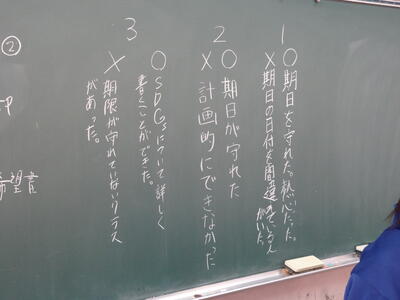 1
○期日を守れた。熱心だった。
×期日の日付を間違えている人がいた。
2
○期日が守れた
×計画的にできなかった
3
○SDGsについて詳しく
書くことができた。
×期限が守れていないクラス
があった。
②
希望言